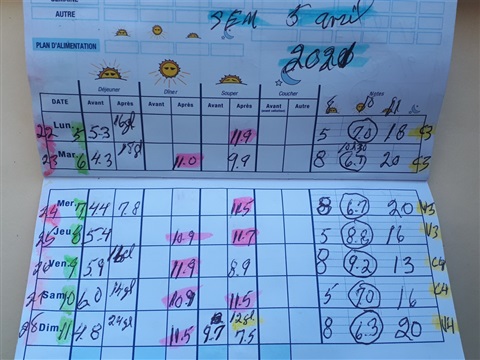 SEMAINE
AUTRE SEM 5 avril
PLAN D'ALIMENTATION 2021
Déjeuner Dîner Souper Coucher Notes
DATE Avant Après Avant Après Avant Après Avant Autre 8 10
22 Lun. 5 5.3 16gl 11.9 5 7.0 18 C3
23 Mar. 6 4.3 18gl 11.0 9.9 8 6.7 20 C3
24 Mer. 7 4.4 7.8 11.5 8 6.7 20 V3
25 Jeu. 8 5.4 10.9 11.7 5 8.8 16 V3
Ven. 9 5.9 11.9 8.9 8 9.2 13 C4
Sam. 10 6.0 14gl 10.9 11.5 5 7.0 16 C4
28 Dim. 11 4.8 24gl 11.5 9.7 12gl 7.5 8 6.3 20 V4